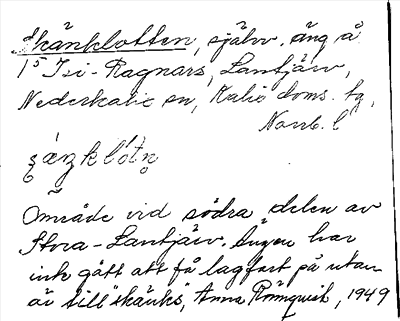 Skänklotten, självr. äng å
1⁵ Isi-Ragnars, Lantjärv,
Nederkalix sn, Kalix doms. tg,
Norrb. l

Område vid södra delen av
Stora-Lantjärv. Ingen har
ink gått att få lagfart på utan
är till "skänks", Anna Rönnqvist, 1949